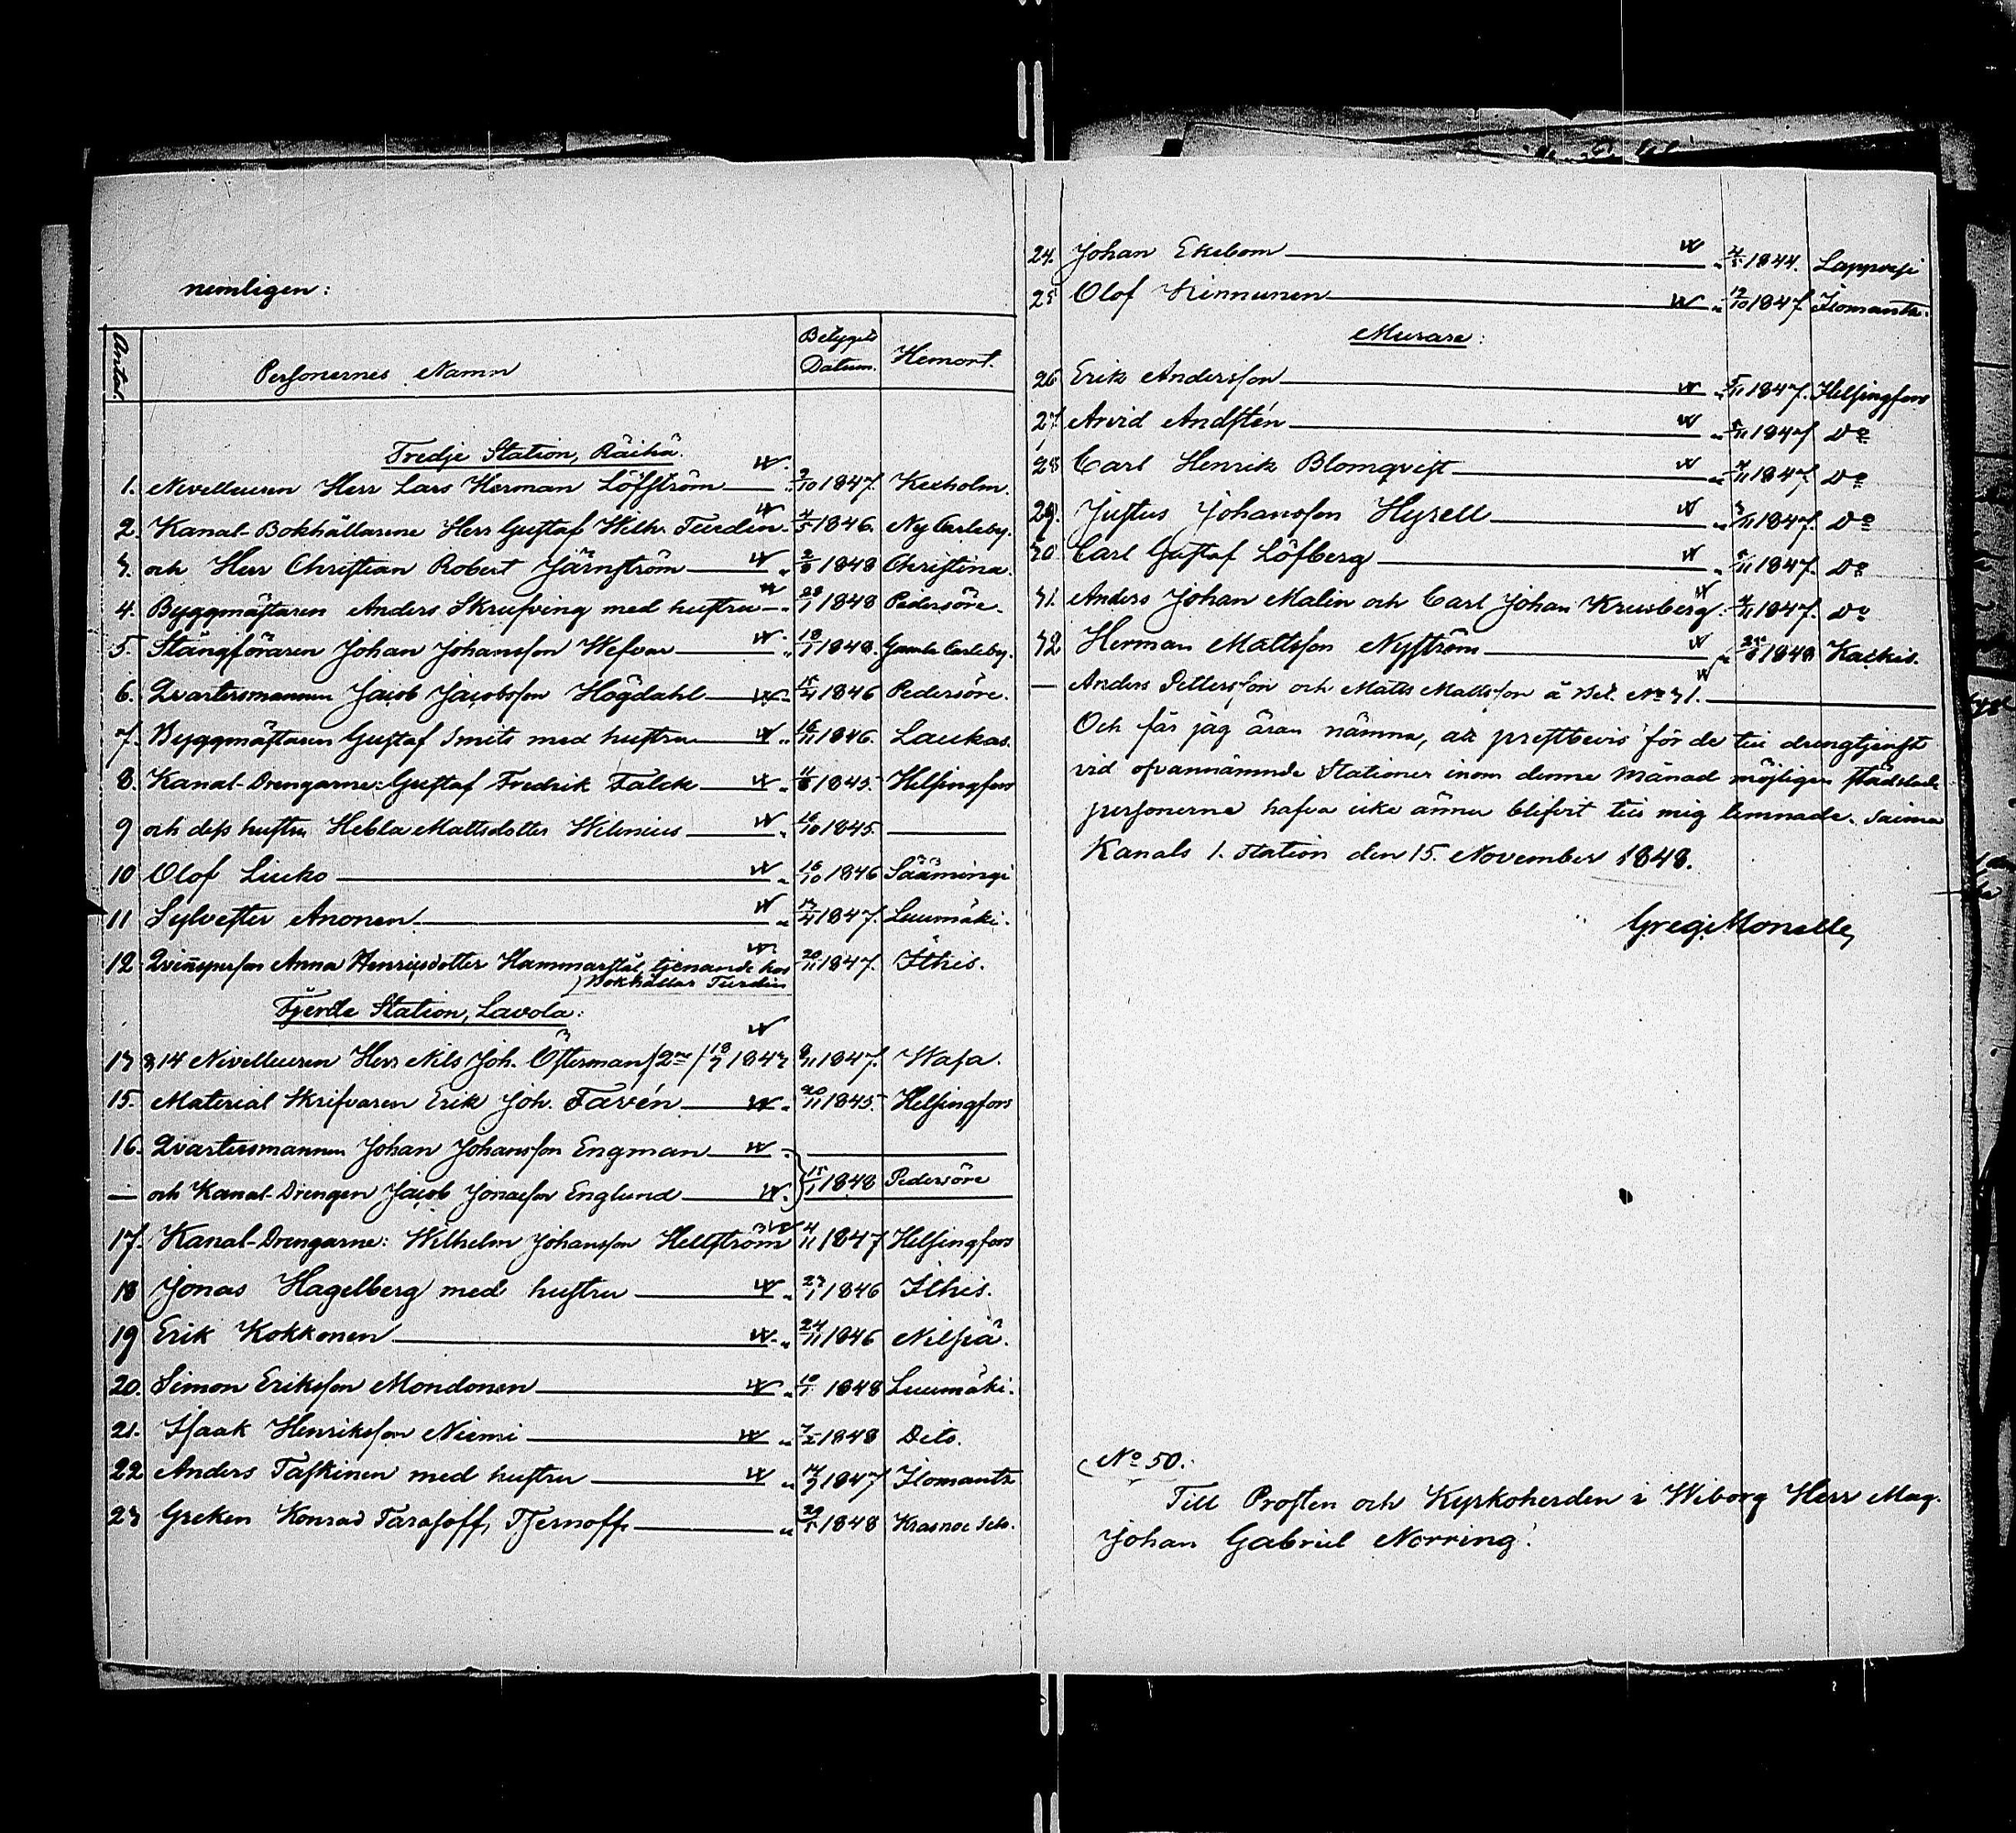 nemligen:
Antal. Personernes Namn Betygets Datum. Hemort.
Tredje Station, Räihä.
1. Nivelleuren Herr Lars Herman Löfström " 9/10 1847. Kexholm.
2. Kanal-Bokhållarene Herr Gustaf Wilh. Turdin " 4/5 1846. Ny Carleby.
3. och Herr Christian Robert Järnström " 2/8 1848 Christina.
4. Byggmästaren Anders Skrufving med hustru " 28/1 1848 Pedersöre.
5. Stångföraren Johan Johansson Wefvar " 18/1 1848. Gamla Carleby.
6. Qvartersmannen Jacob Jacobsson Högdahl " 15/4 1846 Pedersöre.
7. Byggmästaren Gustaf Smits med hustru " 16/11 1846. Laukas.
8. Kanal-Drengarne: Gustaf Fredrik Falck " 11/8 1845. Helsingfors
9 och dess hustru Hebla Mattsdotter Wilenius " 16/10 1845.
10 Olof Liuko " 16/10 1846 Säämingi
11 Sylvester Anonen " 13/4 1847. Luumäki.
12 Qvinsperson Anna Henriksdotter Hammarstål, tjenande hos " 20/11 1847. Ithis.
Bokhållar Turdin
Fjerde Station, Lavola:
13 & 14 Nivelleuren Herr Nils Joh. Österman /2ne/ 18/3 1843 8/11 1847. Wasa.
15. Material Skrifvaren Erik Joh. Tavén " 20/11 1845. Helsingfors
16. Qvartersmannen Johan Johansson Engman
— och Kanal-Drengen Jacob Jonasson Englund 15/1 1848 Pedersöre
17. Kanal-Drengarne: Wilhelm Johansson Hellström 4/11 1847 Helsingfors
18 Jonas Hagelberg med hustru " 23/1 1846 Ithis.
19 Erik Kokkonen " 24/11 1846 Nilsiä.
20. Simon Eriksson Mondonen " 10/1 1848 Luumäki.
21. Isaak Henriksson Niemi " 7/2 1848 Dito.
22 Anders Taskinen med hustru " 14/9 1847 Ilomants
23 Greken Konrad Tarasoff, Tjernoff " 29/5 1848 Krasnoe Selo.
24. Johan Ekebom " 4/5 1844. Lappvesi
25 Olof Kinnunen " 12/10 1847 Ilomants.
Murare:
26 Erik Andersson " 5/11 1847. Helsingfors
27. Arvid Andstén " 5/11 1847 Do
28 Carl Henrik Blomqvist " 4/11 1847 Do
29. Justus Johansson Hyrell " 3/11 1847. Do
30 Carl Gustaf Löfberg " 5/11 1847. Do
31. Anders Johan Malin och Carl Johan Krusberg. 4/11 1847. Do
32 Herman Mattsson Nyström " 25/8 1848 Kackis.
— Anders Pettersson och Matts Mattsson å Bet. No 31.
Och får jag äran nämna, att prestbevis för de till drengtjenst
vid ofvannämnde Stationer inom denne Månad möjligen städslade
personerne hafva icke ännu blifvit till mig lemnade. Saima
Kanals 1. Station den 15. November 1848.
Greg. Monelle
No 50.
Till Prosten och Kyrkoherden i Wiborg Herr Mag.
Johan Gabriel Norring.